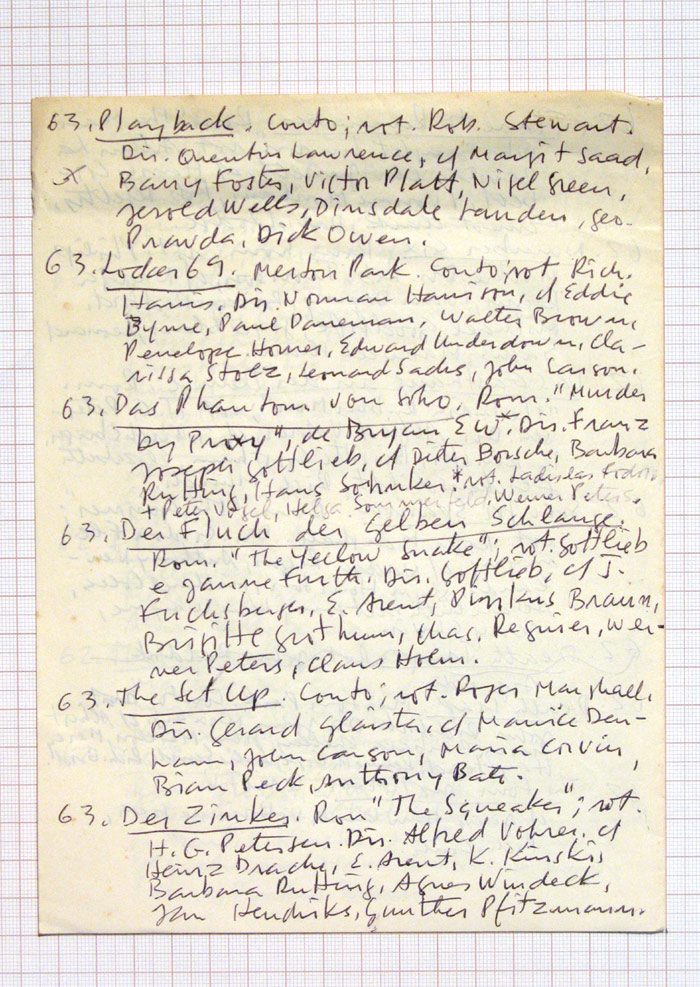 63. Playback. Conto; rot. Rob. Stewart.
Dir. Quentin Lawrence, c/ Margit Saad,
Barry Foster, Victor Platt, Nigel Green,
Jerold Wells, Dinsdale Landen, Geo.
Pravda, Dick Owen.
63. Locker 69. Merton Park. Conto; rot, Rich.
Harris. Dir. Norman Harrison, c/ Eddie
Byrne, Paul Daneman, Walter Brown,
Penelope Horner, Edward Underdown, Cla-
rissa Stolz, Leonard Sachs, John Carson.
63. Das Phantom von Soho, Rom. "Murder
by Proxy", de Bryan E W.* Dir. Franz
Joseph Gottlieb, c/ Dieter Borsche, Barbara
Rutting, Hans Sohnker. *rot. Ladislas Fodor
+ Peter Vogel, Helga Sommerfeld, Werner Peters.
63. Der Fluch der Gelben Schlange.
Rom. "The Yellow Snake"; rot. Gottlieb
e Janne Furth. Dir. Gottlieb, c/ J.
Fuchsberger, E. Arent, Pinkus Braun,
Brigitte Grothum, Chas. Regnier, Wer-
ner Peters, Claus Holm.
63. The Set Up. Conto; rot. Roger Marshall.
Dir. Gerard Glaister, c/ Maurice Den-
ham, John Carson, Maria Corvin,
Brian Peck, Anthony Bate.
63. Der Zinker. Rom "The Squeaker"; rot.
H. G. Petersen. Dir. Alfred Vohrer, c/
Heinz Drache, E. Arent, K. Kinski,
Barbara Rutting, Agnes Windeck,
Jan Hendriks, Gunther Pfitzmann.